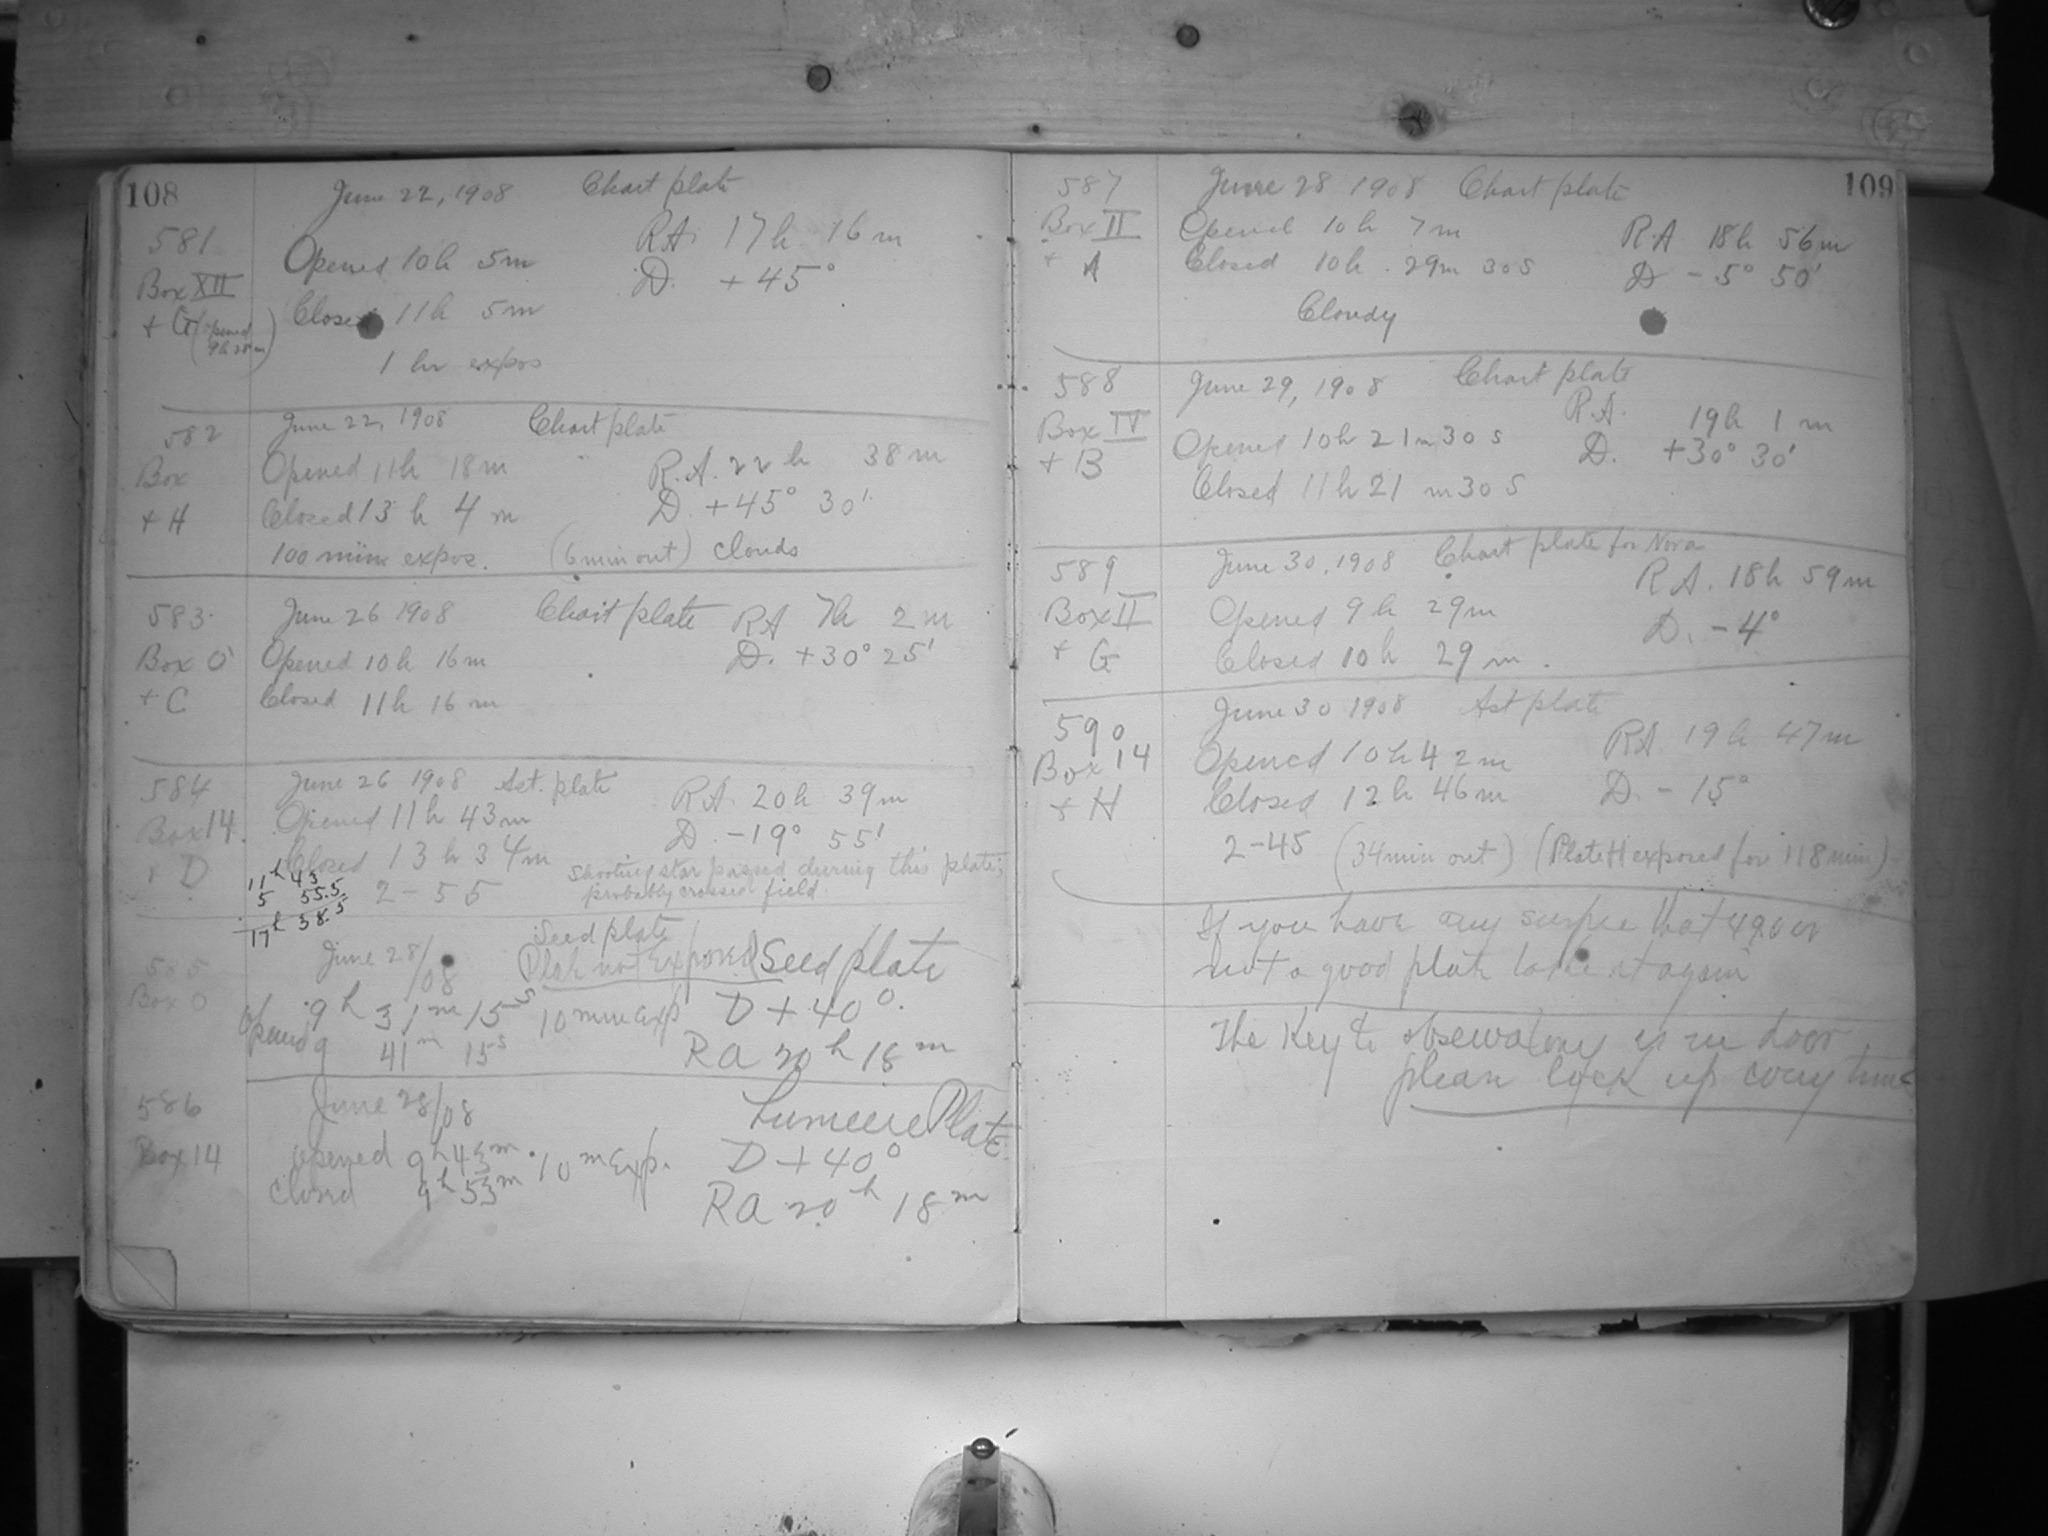 108
June 22, 1908 Chart plate
581
Opened 10h 5m
RA. 17h 16m
Box XII
D. +45°
+ G (opened 9h 28m)
Closed 11h 5m
1 hr expos
582
June 22, 1908 Chart plate
Box
Opened 11h 18m
R.A. 22h 38m
+ H
Closed 13h 4m
D. +45° 30'
100 min expos. (6 min out) clouds
583.
June 26 1908 Chart plate RA 7h 2m
Box 0
Opened 10h 16m
D. +30° 25'
+ C
Closed 11h 16m
584
June 26 1908 Ast. plate
RA. 20h 39m
Box 14.
Opened 11h 43m
D. -19° 55'
+ D
Closed 13h 34m
Shooting star passed during this plate;
probably crossed field
2-55
11h 43
5 55.5
17h 38.5
585
Box 0
June 28/08
Seed plate
(Plate not Exposed) Seed plate
opened 9h 31m 15s 10 min Exp D + 40°.
9 41m 15s
RA 20h 18m
586
June 28/08
Lumiere Plate
Box 14
opened 9h 43m 10m Exp. D + 40°
closed 9h 53m
RA 20h 18m
109
587
June 28 1908 Chart plate
Box II
Opened 10h 7m
R.A 18h 56m
+ A
Closed 10h. 29m 30s
D -5° 50'
Cloudy
588
June 29, 1908 Chart plate
Box IV
R.A. 19h 1m
+ B
Opened 10h 21m 30s
D. +30° 30'
Closed 11h 21m 30s
589
June 30, 1908 Chart plate for Nova
Box II
Opened 9h 29m
RA. 18h 59m
+ G
Closed 10h 29m.
D. -4°
590
June 30 1908 Ast plate
Box 14
Opened 10h 42m
RA 19h 47m
+ H
Closed 12h 46m
D. -15°
2-45 (34 min out) (Plate H exposed for 118 min)
If you have any that 490 is
not a good plate take it again
The Key to observatory is in door
please lock up every time